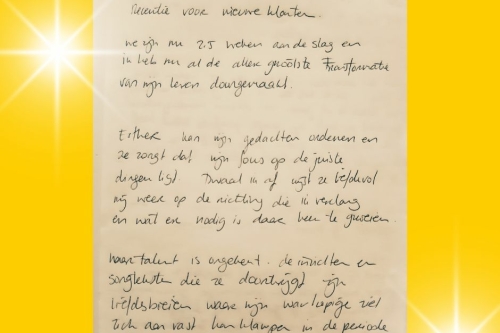 Recensie voor nieuwe klanten.
we zijn nu 2,5 weken aan de slag en
ik heb nu al de aller grootste Transformatie
van mijn leven doorgemaakt.
Esther kan mijn gedachten ordenen en
ze zorgt dat mijn focus op de juiste
dingen ligt Dwaal ik af wijst ze liefdevol
mij weer op de richting die ik verlang
en wat er nodig is daar heen te
haar talent is ongekent. de inzichten en
die ze doorkrijgt zijn
waar mijn ziel
zich aan vast kan klampen in de periode